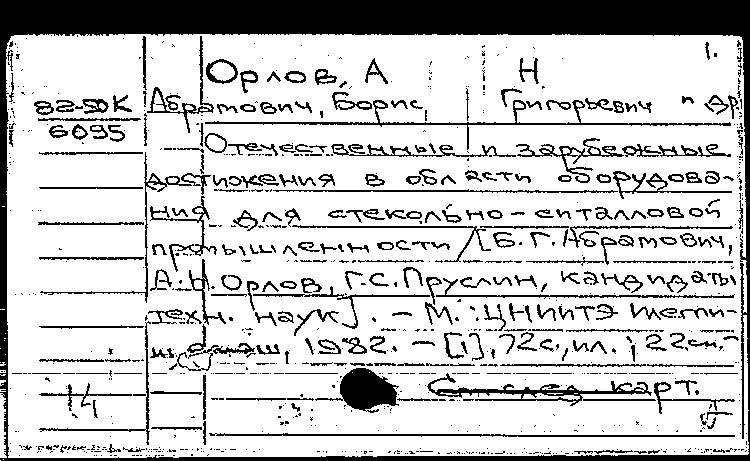 1.
Орлов, А Н
82-50К Абрамович, Борис Григорьевич и др
6095
Отечественные и зарубежные
достижения в области оборудова-
ния для стекольно-ситалловой
промышленности / [Б. Г. Абрамович,
А. Н. Орлов, Г. С. Пруслин, кандидаты
техн. наук]. – М. : ЦНИИТЭ
1982. – [1], 72 с., ил. ; 22 см. –
14 См след. карт.